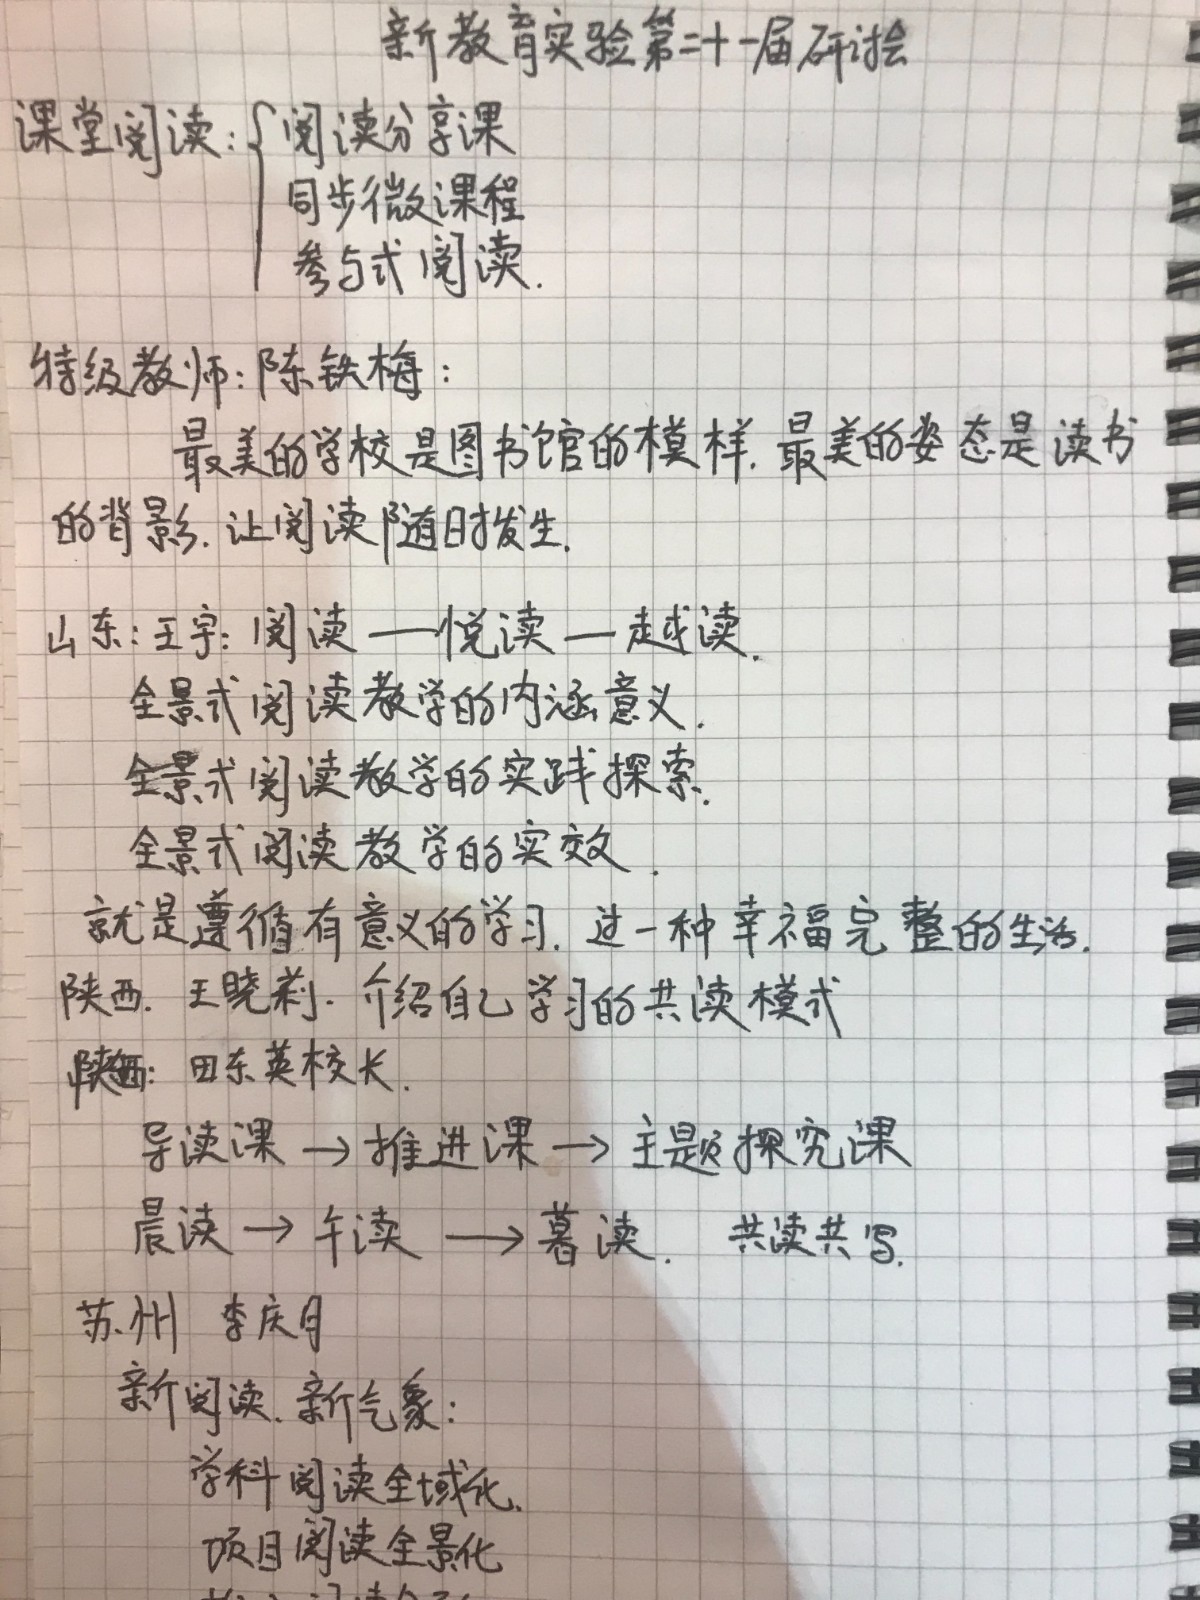 新教育实验第二十一届研讨会
课堂阅读：{阅读分享课
同步微课程
参与式阅读.
特级教师：陈铁梅：
最美的学校是图书馆的模样.最美的姿态是读书
的背影.让阅读随时发生.
山东：王宇：阅读——悦读—越读.
全景式阅读教学的内涵意义.
全景式阅读教学的实践探索.
全景式阅读教学的实效.
就是遵循有意义的学习.过一种幸福完整的生活.
陕西.王晓莉.介绍自己学习的共读模式
陕西：田东英校长.
导读课→推进课→主题探究课
晨读→午读→暮读. 共读共写.
苏州 李庆月
新阅读.新气象：
学科阅读全域化.
项目阅读全景化